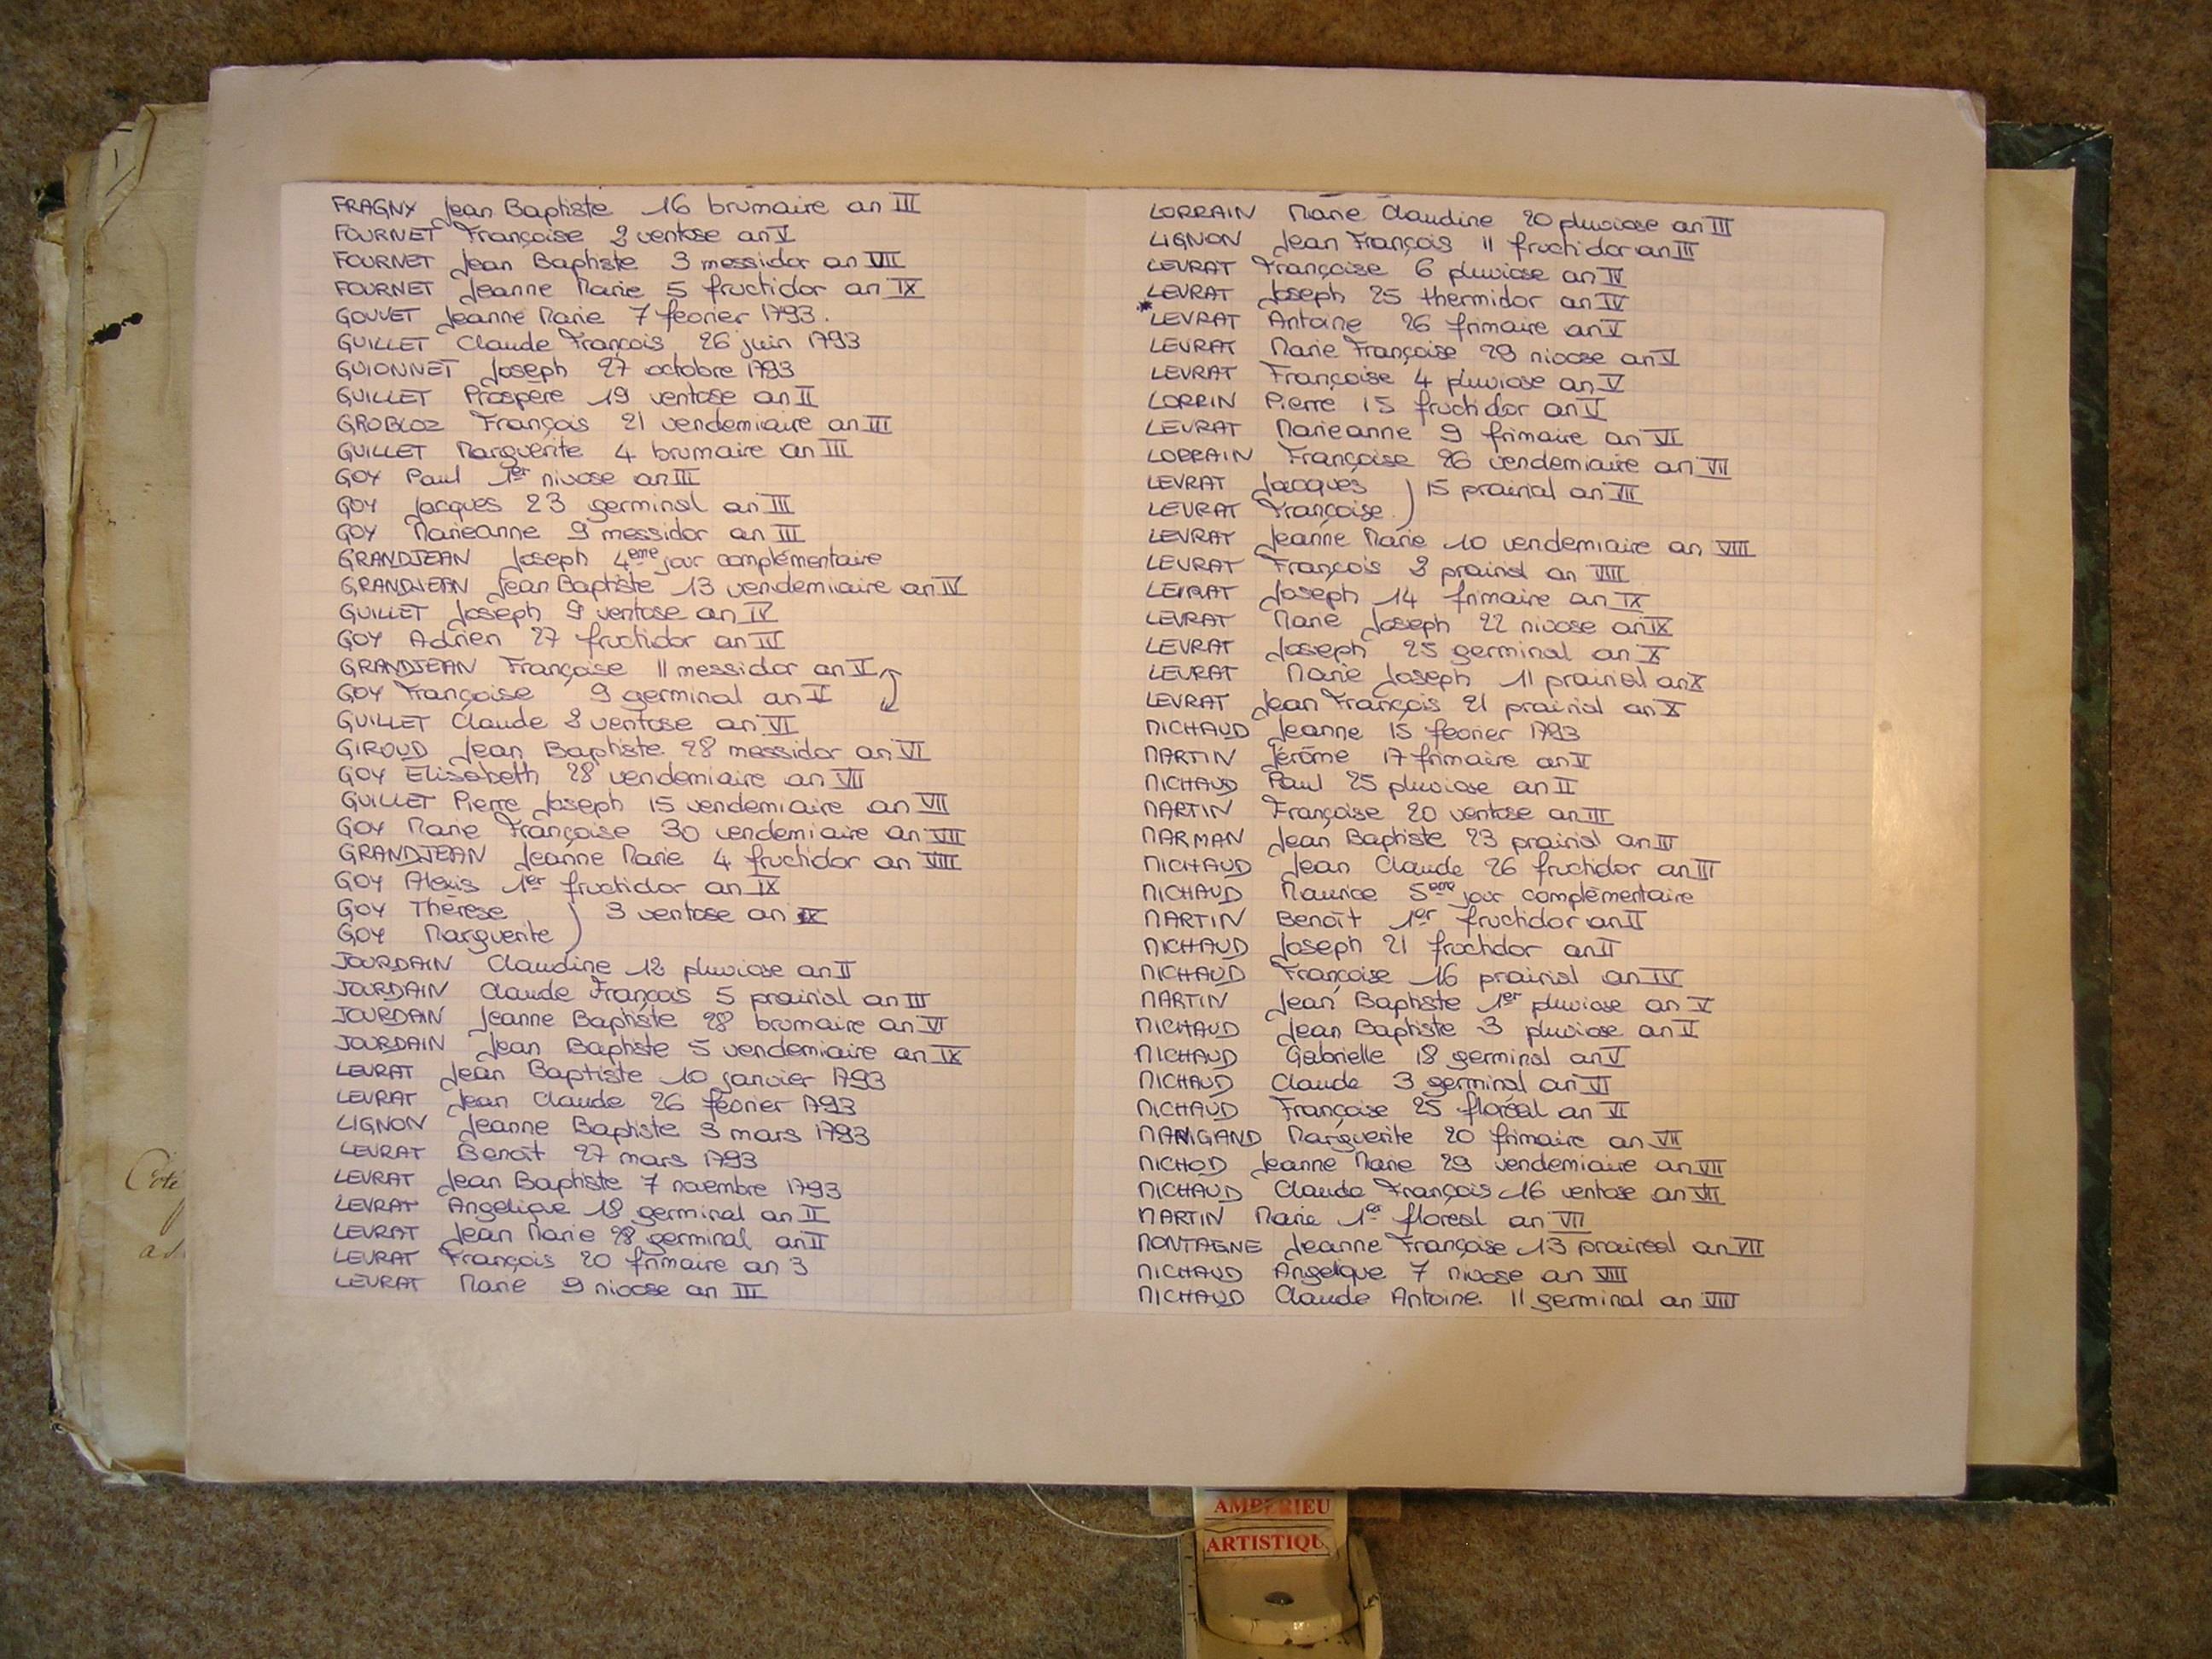 FRAGNY Jean Baptiste 16 brumaire an III
FOURNET Françoise 2 ventose an V
FOURNET Jean Baptiste 3 messidor an VII
FOURNET Jeanne Marie 5 fructidor an IX
GOUVET Jeanne Marie 7 février 1793.
GUILLET Claude François 26 juin 1793
GUIONNET Joseph 27 octobre 1793
GUILLET Prospère 19 ventose an II
GROBLOZ François 21 vendemiaire an III
GUILLET Marguerite 4 brumaire an III
GOY Paul 1er nivose an III
GOY Jacques 23 germinal an III
GOY Marieanne 9 messidor an III
GRANDJEAN Joseph 4eme jour complémentaire
GRANDJEAN Jean Baptiste 13 vendemiaire an IV
GUILLET Joseph 9 ventose an IV
GOY Adrien 27 fructidor an III
GRANDJEAN Françoise 11 messidor an V
GOY Françoise 9 germinal an V
GUILLET Claude 2 ventose an VI
GIROUD Jean Baptiste 28 messidor an VI
GOY Elisabeth 28 vendemiaire an VII
GUILLET Pierre Joseph 15 vendemiaire an VII
GOY Marie Françoise 30 vendemiaire an VII
GRANDJEAN Jeanne Marie 4 fructidor an VIII
GOY Alexis 1er fructidor an IX
GOY Thérèse ) 3 ventose an IX
GOY Marguerite )
JOURDAIN Claudine 12 pluviose an II
JOURDAIN Claude François 5 prairial an III
JOURDAIN Jeanne Baptiste 28 brumaire an VI
JOURDAIN Jean Baptiste 5 vendemiaire an IX
LEVRAT Jean Baptiste 10 janvier 1793
LEVRAT Jean Claude 26 février 1793
LIGNON Jeanne Baptiste 3 mars 1793
LEVRAT Benoît 27 mars 1793
LEVRAT Jean Baptiste 7 novembre 1793
LEVRAT Angelique 18 germinal an II
LEVRAT Jean Marie 28 germinal an II
LEVRAT François 20 frimaire an 3
LEVRAT Marie 9 nivose an III
LORRAIN Marie Claudine 20 pluviose an III
LIGNON Jean François 11 fructidor an III
LEVRAT Françoise 6 pluviose an IV
LEVRAT Joseph 25 thermidor an IV
* LEVRAT Antoine 26 frimaire an V
LEVRAT Marie Françoise 29 nivose an V
LEVRAT Françoise 4 pluviose an V
LORRIN Pierre 15 fructidor an V
LEVRAT Marieanne 9 frimaire an VI
LORRAIN Françoise 26 vendemiaire an VII
LEVRAT Jacques ) 15 prairial an VII
LEVRAT Françoise )
LEVRAT Jeanne Marie 10 vendemiaire an VIII
LEVRAT François 2 prairial an VIII
LEVRAT Joseph 14 frimaire an IX
LEVRAT Marie Joseph 22 nivose an IX
LEVRAT Joseph 25 germinal an X
LEVRAT Marie Joseph 11 prairial an X
LEVRAT Jean François 21 prairial an X
MICHAUD Jeanne 15 février 1793
MARTIN Jérôme 17 frimaire an II
MICHAUD Paul 25 pluviose an II
MARTIN Françoise 20 ventose an III
MARMAN Jean Baptiste 23 prairial an III
MICHAUD Jean Claude 26 fructidor an III
MICHAUD Maurice 5eme jour complémentaire
MARTIN Benoît 1er fructidor an II
MICHAUD Joseph 21 fructidor an II
MICHAUD Françoise 16 prairial an IV
MARTIN Jean Baptiste 1er pluviose an V
MICHAUD Jean Baptiste 3 pluviose an V
MICHAUD Gabrielle 18 germinal an V
MICHAUD Claude 3 germinal an VI
MICHAUD Françoise 25 floréal an VI
MARIGAND Marguerite 20 frimaire an VII
MICHOD Jeanne Marie 29 vendemiaire an VII
MICHAUD Claude François 16 ventose an VII
MARTIN Marie 1er floreal an VII
MONTAGNE Jeanne Françoise 13 praireal an VII
MICHAUD Angelique 7 nivose an VIII
MICHAUD Claude Antoine 11 germinal an VIII
Cote
AMBERIEU
ARTISTIQU